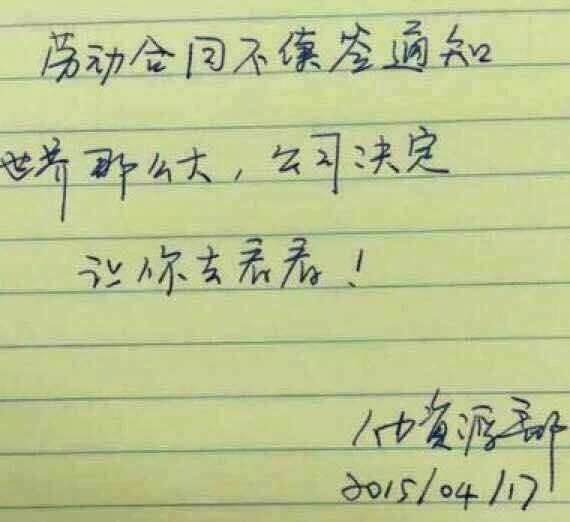 劳动合同不续签通知
世界那么大,公司决定
让你去看看!
人力资源部
2015/04/17